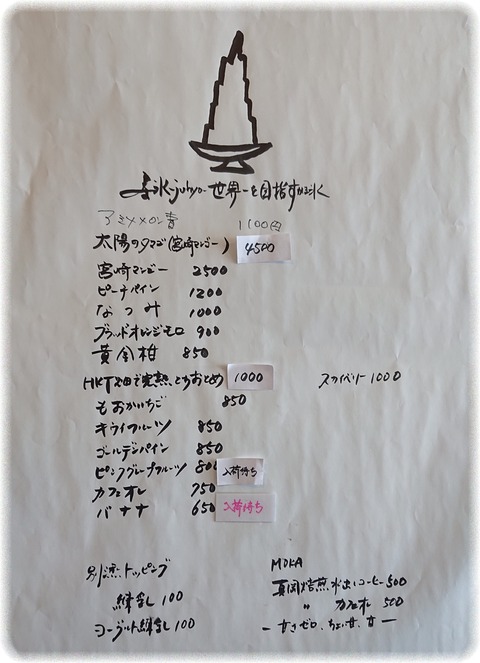 寿氷-juhyo- 世界一を目指すかき氷
アミメメロン青 1100円
太陽のタマゴ(宮崎マンゴー) 4500
宮崎マンゴー 2500
ピーチパイン 1200
なつみ 1000
ブラッドオレンジモロ 900
黄金柑 850
完熟とちおとめ 1000 スカイベリー 1000
もおかいちご 850
キウイフルーツ 850
ゴールデンパイン 850
ピンクグレープフルーツ 800 入荷待ち
カフェオレ 750
バナナ 650 入荷待ち
別添トッピング
練乳 100
ヨーグルト練乳 100
MOKA
真岡焙煎水出しコーヒー 500
〃 カフェオレ 500
- 甘さゼロ、ちょい甘、甘 -